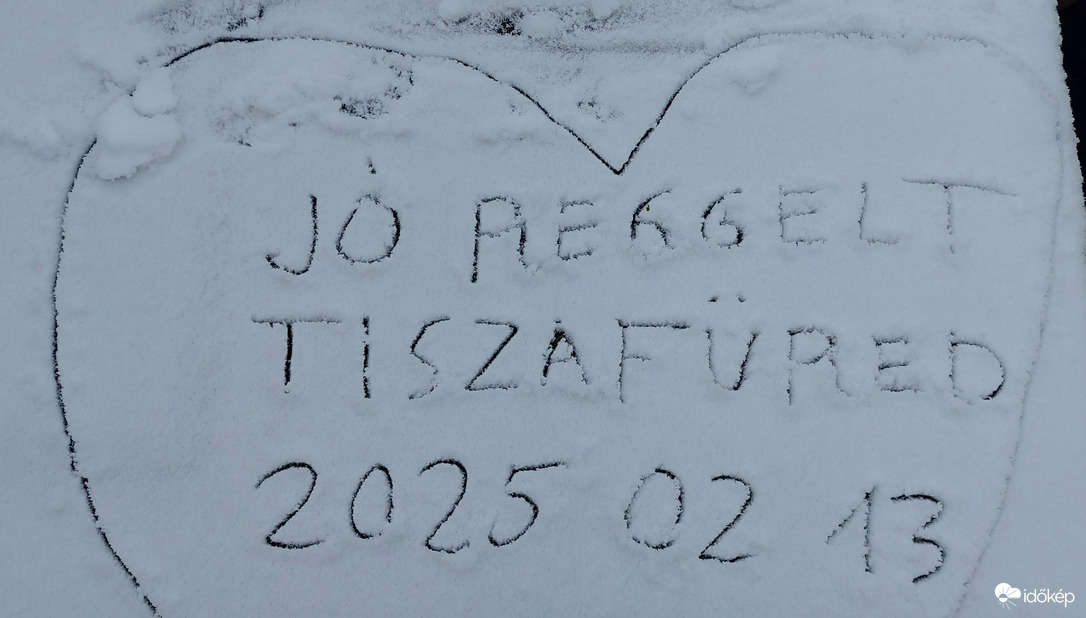 JÓ REGGELT
TISZAFÜRED
2025 02 13
időkép